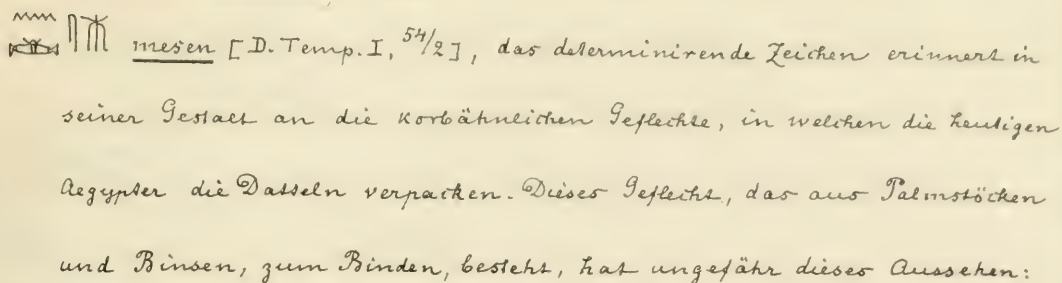 mesen [D. Temp. I, 54/2], das determinirende Zeichen erinnert in
seiner Gestalt an die korbähnlichen Geflechte, in welchen die heutigen
Aegypter die Datteln verpacken. Dieses Geflecht, das aus Palmstöcken
und Binsen, zum Binden, besteht, hat ungefähr dieses Aussehen: